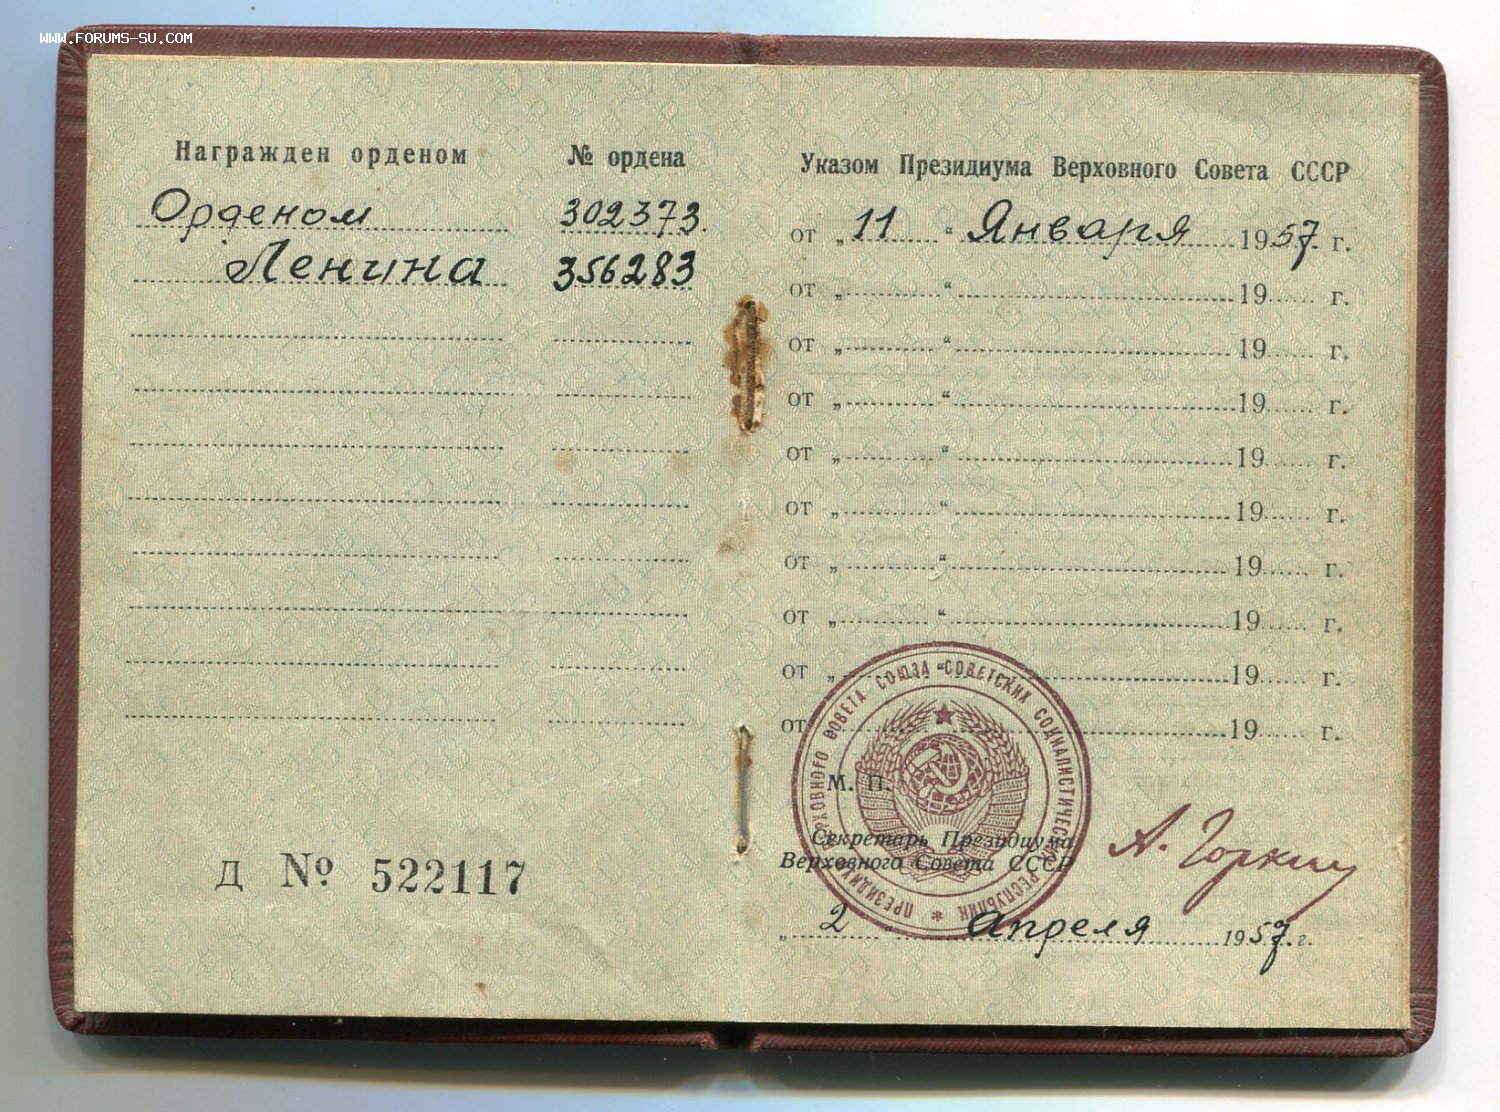 www.FORUMS-SU.COM
Награжден орденом № ордена
Орденом 302373.
Ленина 356283
Д № 522117
Указом Президиума Верховного Совета СССР
от „ 11 “ Января 1957. г.
от „ “ 19 г.
от „ “ 19 г.
от „ “ 19 г.
от „ “ 19 г.
от „ “ 19 г.
от „ “ 19 г.
от „ “ 19 г.
от „ “ 19 г.
от 19 г.
ПРЕЗИДИУМ ВЕРХОВНОГО СОВЕТА СОЮЗА СОВЕТСКИХ СОЦИАЛИСТИЧЕСКИХ РЕСПУБЛИК
М. П.
Секретарь Президиума
Верховного Совета СССР
А. Горкин
„ 2 “ Апреля 1957. г.